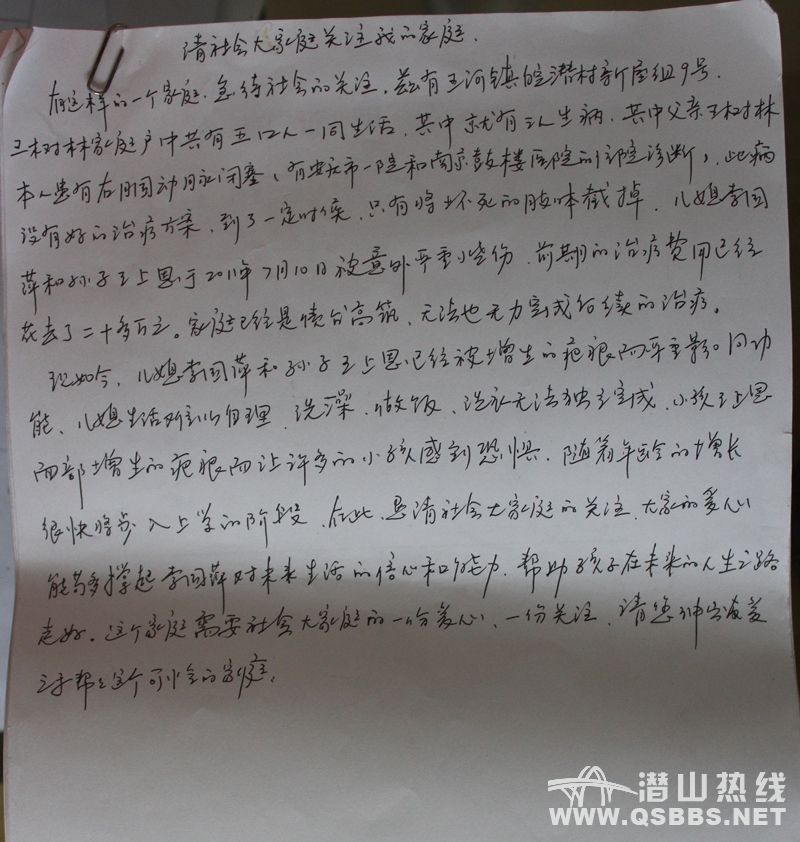 请社会大家庭关注我的家庭.
有这样的一个家庭.急待社会的关注.兹有王河镇皖潜村新屋组9号.
王树林家庭户中共有五口人一同生活.其中就有三人生病.其中父亲王树林
本人患有右胭动脉闭塞,有安庆市一院和南京鼓楼医院的门院诊断,此病
没有好的治疗方案,到了一定时候,只有将坏死的肢体截掉.儿媳李国
萍和孙子王上恩于2011年7月10日被意外严重烧伤,前期的治疗费用已经
花去了二十多万元。家庭已经是债台高筑,无法也无力完成后续的治疗。
现如今,儿媳李国萍和孙子王上恩已经被增生的疤痕而严重影响功
能、儿媳生活难以自理,洗澡,做饭,洗衣无法独立完成.小孩王上恩
面部增生的疤痕而让许多的小孩感到恐惧.随着年龄的增长
很快将步入上学的阶段,在此,恳请社会大家庭的关注,大家的爱心
能够多撑起李国萍对未来生活的信心和能力.帮助孩子在未来的人生之路
走好.这个家庭需要社会大家庭的一份爱心、一份关注,请您伸出友爱
之手帮帮这个可怜的家庭.
潜山热线
WWW.QSBBS.NET